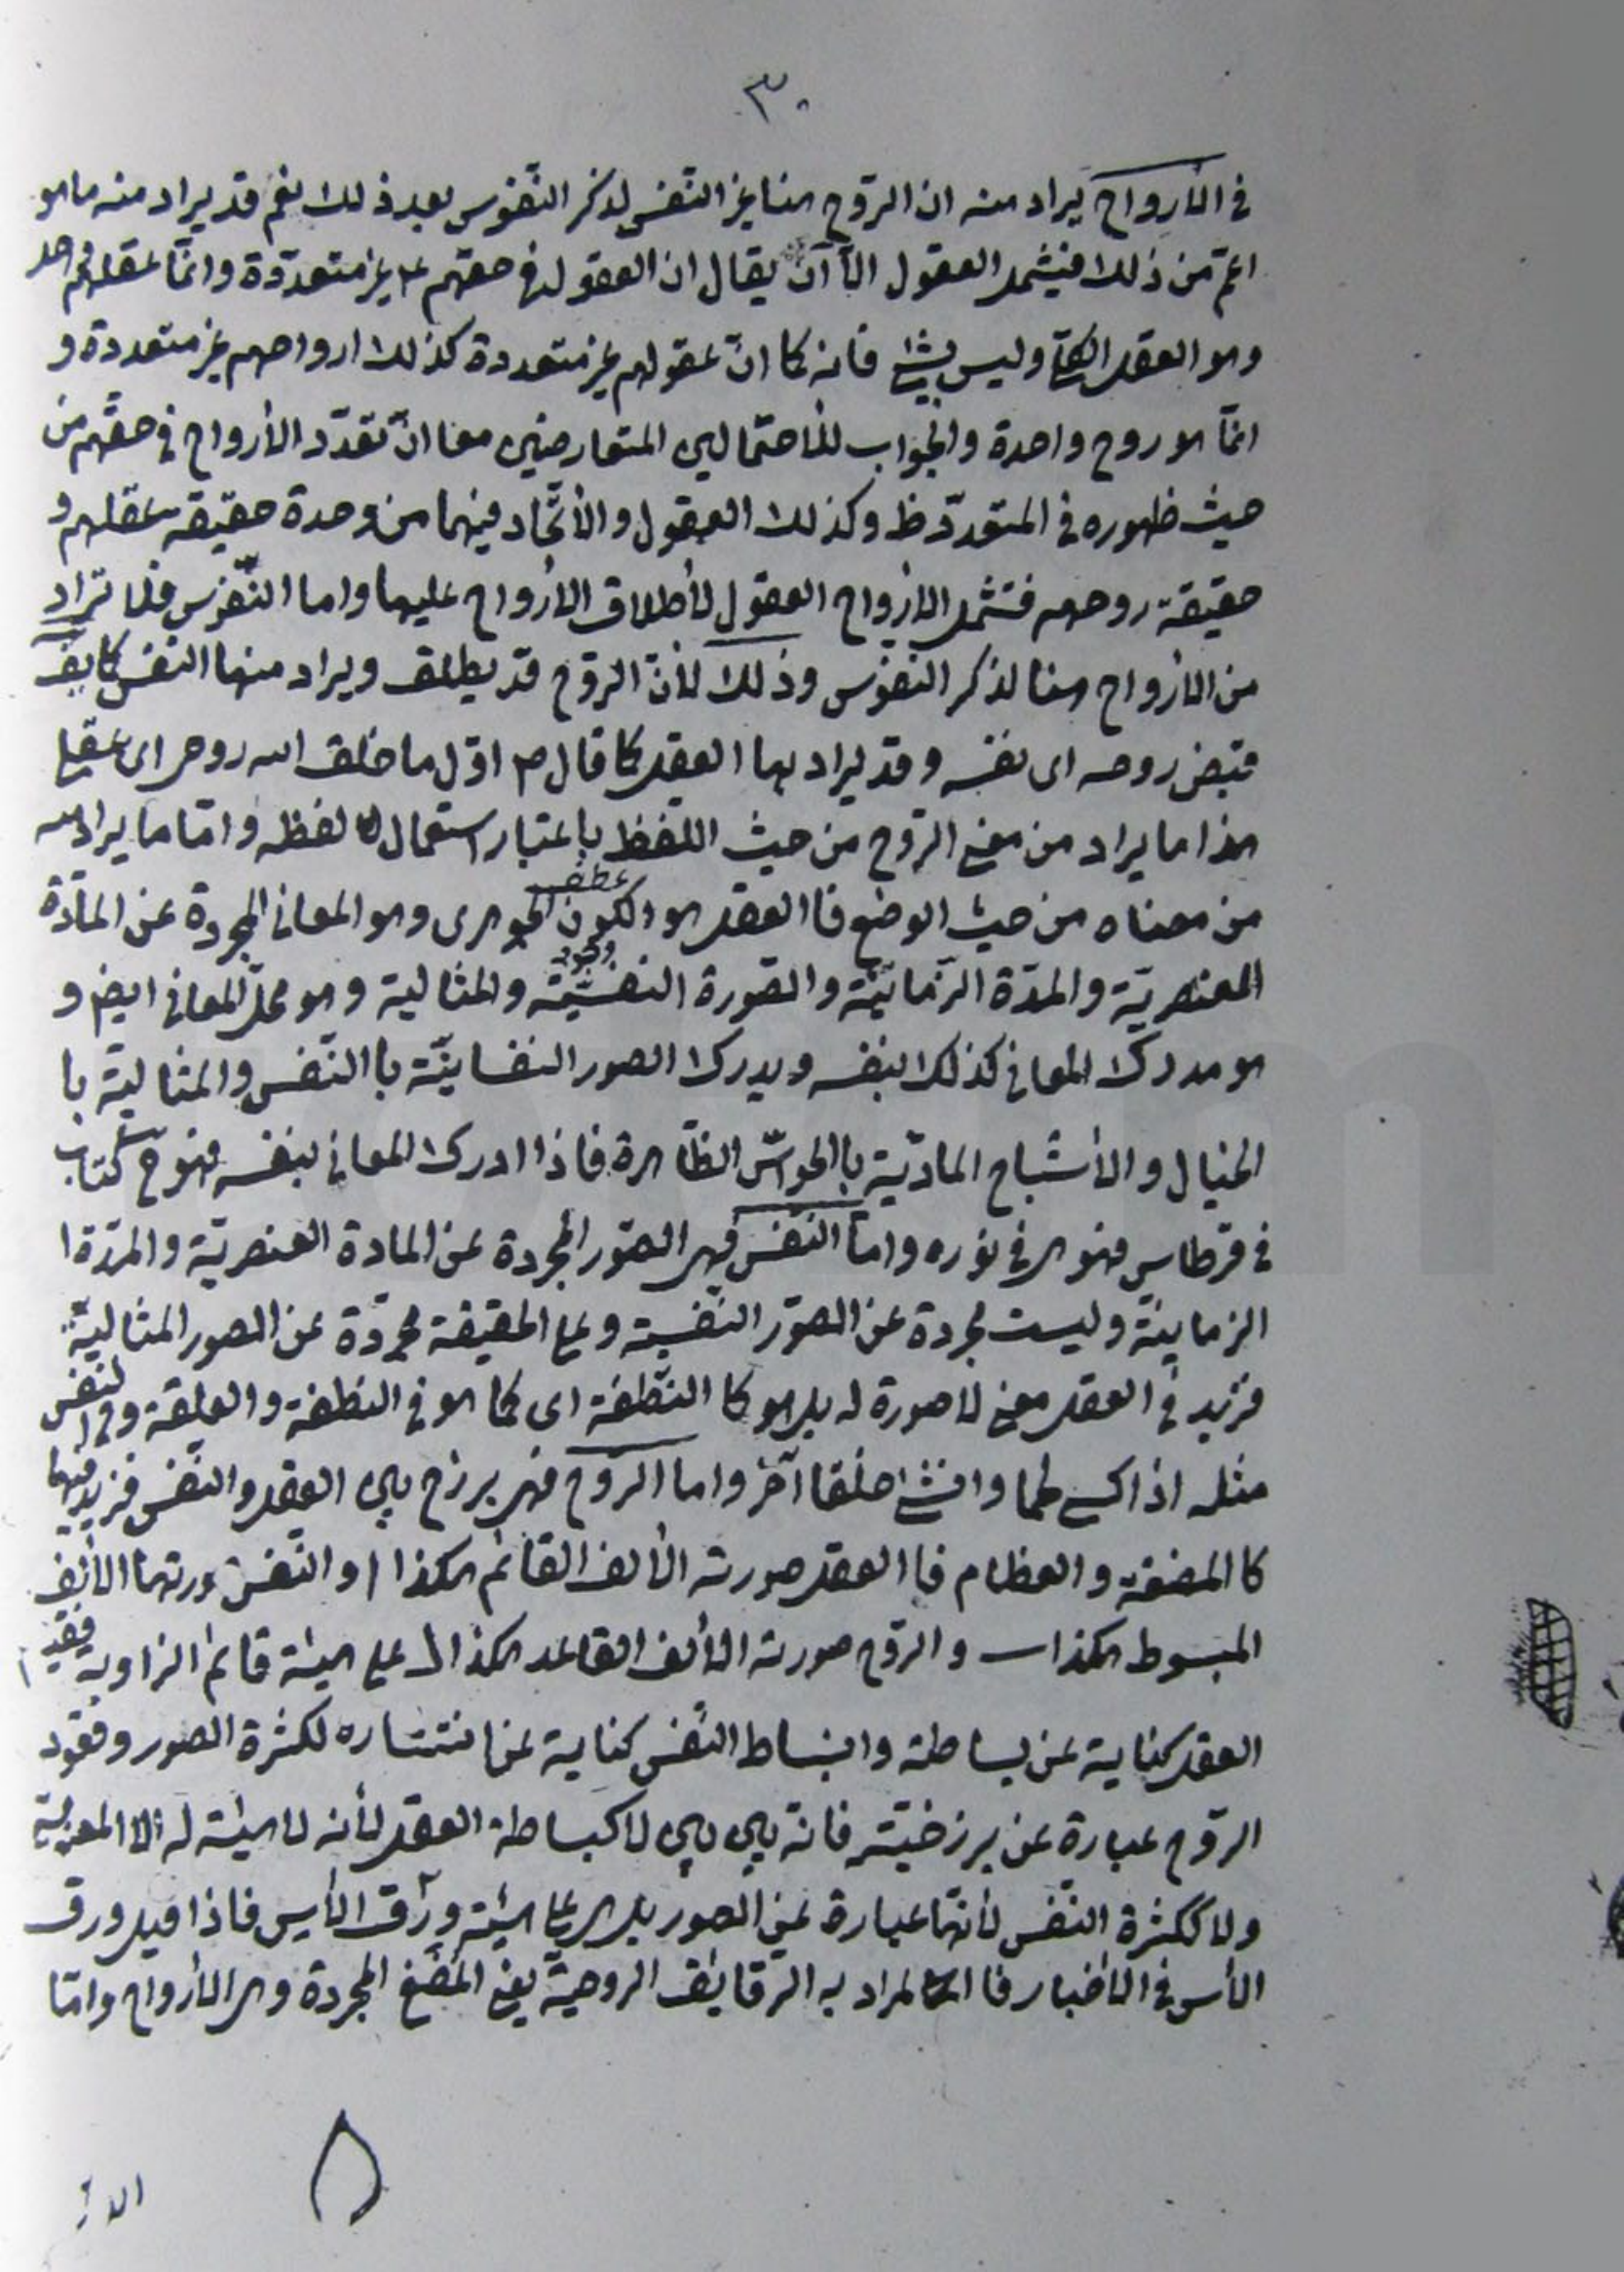 ٣٠
في الأرواح يراد منه ان الروح هنا غير النفس لذكر النفوس بعد ذلك نعم قد يراد منه ما هو
اعمّ من ذلك فيشمل العقول الّا ان يقال ان العقول في حقّهم ع غير متعدّدة وانّما عقلهم واحد
وهو العقل الكلّي وليس بشئ فانه كما انّ عقولهم غير متعددة كذلك ارواحهم غير متعددة و
انّما هو روح واحدة والجواب للأحتمالين المتعارضين معا انّ تعدّد الأرواح في حقّهم من
حيث ظهوره في المتعدّد ظ وكذلك العقول والأتّحاد فيهما من وحدة حقيقه عقلهم و
حقيقة روحهم فتشمل الأرواح العقول لأطلاق الأرواح عليها واما النّفوس فلا تراد
من الأرواح هنا لذكر النفوس وذلك لأنّ الرّوح قد يطلق ويراد منها النفس كما يقال
قبض روحه اى نفسه وقد يراد بها العقل كما قال ص اوّل ما خلق الله روحى اى عقلى
هذا ما يراد من معنى الرّوح من حيث اللفظ باعتبار استعمال لفظه وامّا ما يراد منه
من معناه من حيث الوضع فا العقل هو الكون الجوهرى وهو المعانى المجردة عن المادّة
العنصريّة والمدّة الزّمانيّة والصّورة النفسيّة والمثالية وهو محلّ المعانى ايض و
هو مدرك المعانى كذلك بنفسه ويدرك الصور النفسانيّة با النّفس والمثاليّة با
الخيال والأشباح الماديّة با الحواسّ الظّاهرة فاذا ادرك المعانى بنفسه فهو ح كتاب
في قرطاس فهو هى في نوره وامّا النّفس فهى الصّور المجردة عن المادة العنصريّة والمدّة ا
الزمانيّة وليست مجردة عن الصّور النّفسيّة وعلى الحقيقة مجرّدة عن الصور المثاليّة
فزيد في العقل معنى لا صورة له بل هو كا النّطفة اى كما هو في النطفة والعلقة وفي النفس
مثله اذا كسى لحما وانشئ خلقا آخر واما الروح فهى برزخ بين العقل والنفس فزيد فيها
كا المضغة والعظام فا العقل صورته الألف القائم هكذا ا والنّفس صورتها الألف
المبسوط هكذا ـــ والروح صورته الألف القاعد هكذا لـ على هيئة قائم الزاوية فقيام
العقل كناية عن بساطته وانبساط النّفس كناية عن انتشاره لكثرة الصور وقعود
الرّوح عبارة عن برزخيّته فانه بين بين لا كبساطة العقل لأنه لا هيئة له الّا المعنويّة
ولا ككثرة النّفس لأنّها عبارة عن الصور بل هى على هيئة ورق الأس فاذا قيل ورق
الأس في الأخبار فا المراد به الرّقايق الروحيّة يعنى المضغ المجردة وهى الأرواح وامّا